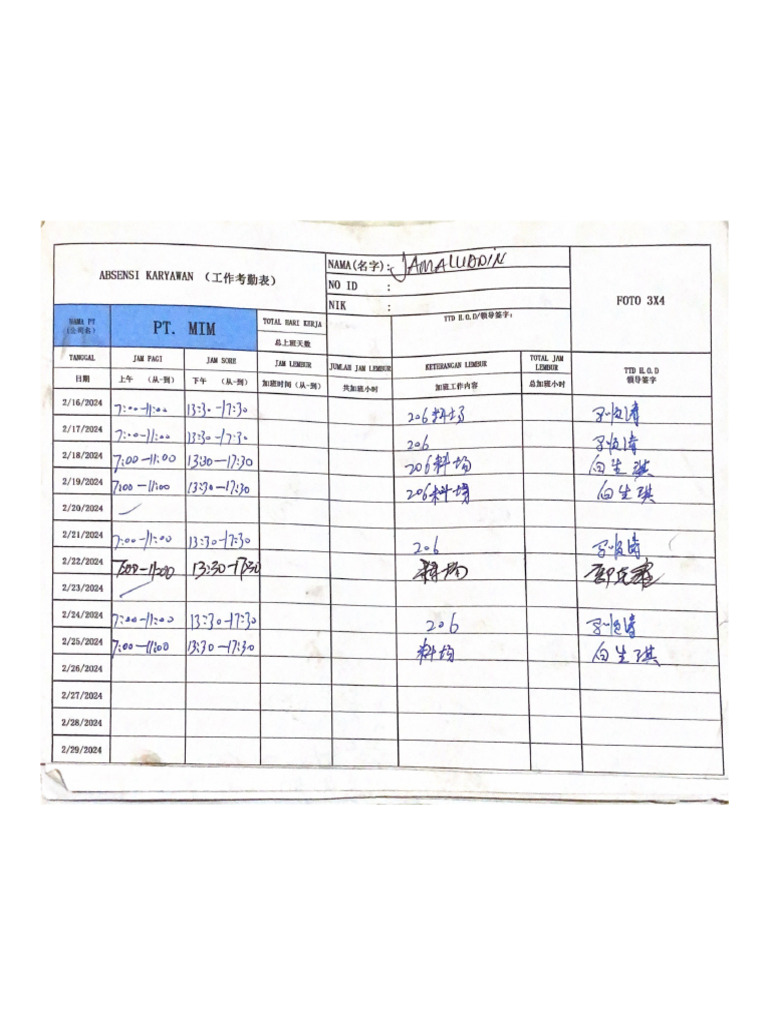 ABSENSI KARYAWAN （工作考勤表）
NAMA(名字): JAMALUDDIN
NO ID :
NIK :
FOTO 3X4
NAMA PT (公司名)
PT. MIM
TOTAL HARI KERJA
总上班天数
TTD H.O.D/领导签字:
TANGGAL JAM PAGI JAM SORE JAM LEMBUR JUMLAH JAM LEMBUR KETERANGAN LEMBUR TOTAL JAM LEMBUR TTD H.O.D
日期 上午 （从-到） 下午 （从-到） 加班时间（从-到） 共加班小时 加班工作内容 总加班小时 领导签字
2/16/2024 7:00-11:00 13:30-17:30 206料场
2/17/2024 7:00-11:00 13:30-17:30 206
2/18/2024 7:00-11:00 13:30-17:30 206料场 白生琪
2/19/2024 7:00-11:00 13:30-17:30 206料场 白生琪
2/20/2024
2/21/2024 7:00-11:00 13:30-17:30 206
2/22/2024 7:00-11:00 13:30-17:30 料场
2/23/2024
2/24/2024 7:00-11:00 13:30-17:30 206
2/25/2024 7:00-11:00 13:30-17:30 料场 白生琪
2/26/2024
2/27/2024
2/28/2024
2/29/2024